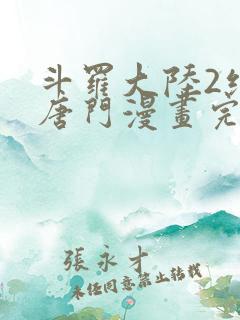 斗羅大陸2
唐門漫畫完
張永才
未經同意禁止轉載